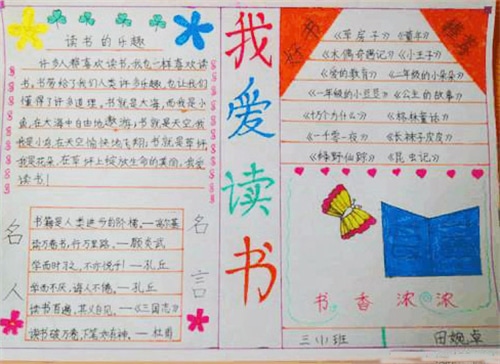 读书的乐趣
许多人都喜欢读书,我也一样喜欢读
书。书带给了我们人类许多乐趣,也让我们
懂得了许多道理。书就是大海,而我是小
鱼,在大海中自由地遨游;书就是天空,我
是小鸟,在天空愉快地飞翔;书就是草坪
我是花朵,在草坪上绽放生命的美丽。我爱
读书!
名人名言
书籍是人类进步的阶梯。—高尔基
读万卷书,行万里路。—顾炎武
学而时习之,不亦悦乎!—孔丘
学而不厌,诲人不倦。—孔丘
读书百遍,其义自见。—《三国志》
读书破万卷,下笔如有神。—杜甫
我爱读书
好书推荐
《草房子》《童年》
《木偶奇遇记》《小王子》
《爱的教育》《二年级的小朵朵》
《一年级的小豆豆》《公主的故事》
《十万个为什么》《格林童话》
《一千零一夜》《长袜子皮皮》
《绿野仙踪》《昆虫记》
书香浓浓
三(1)班
田婉卓